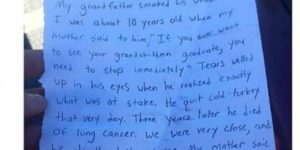 My grandfather smoked his
I was about 10 years old when my
mother said to him, "If you ever want
to see your grandchildren graduate, you
need to stop immediately". Tears welled
up in his eyes when he realized exactly
what was at stake. He quit cold-turkey
that very day. Three years later he died
of lung cancer. We were very close, and
My mother said